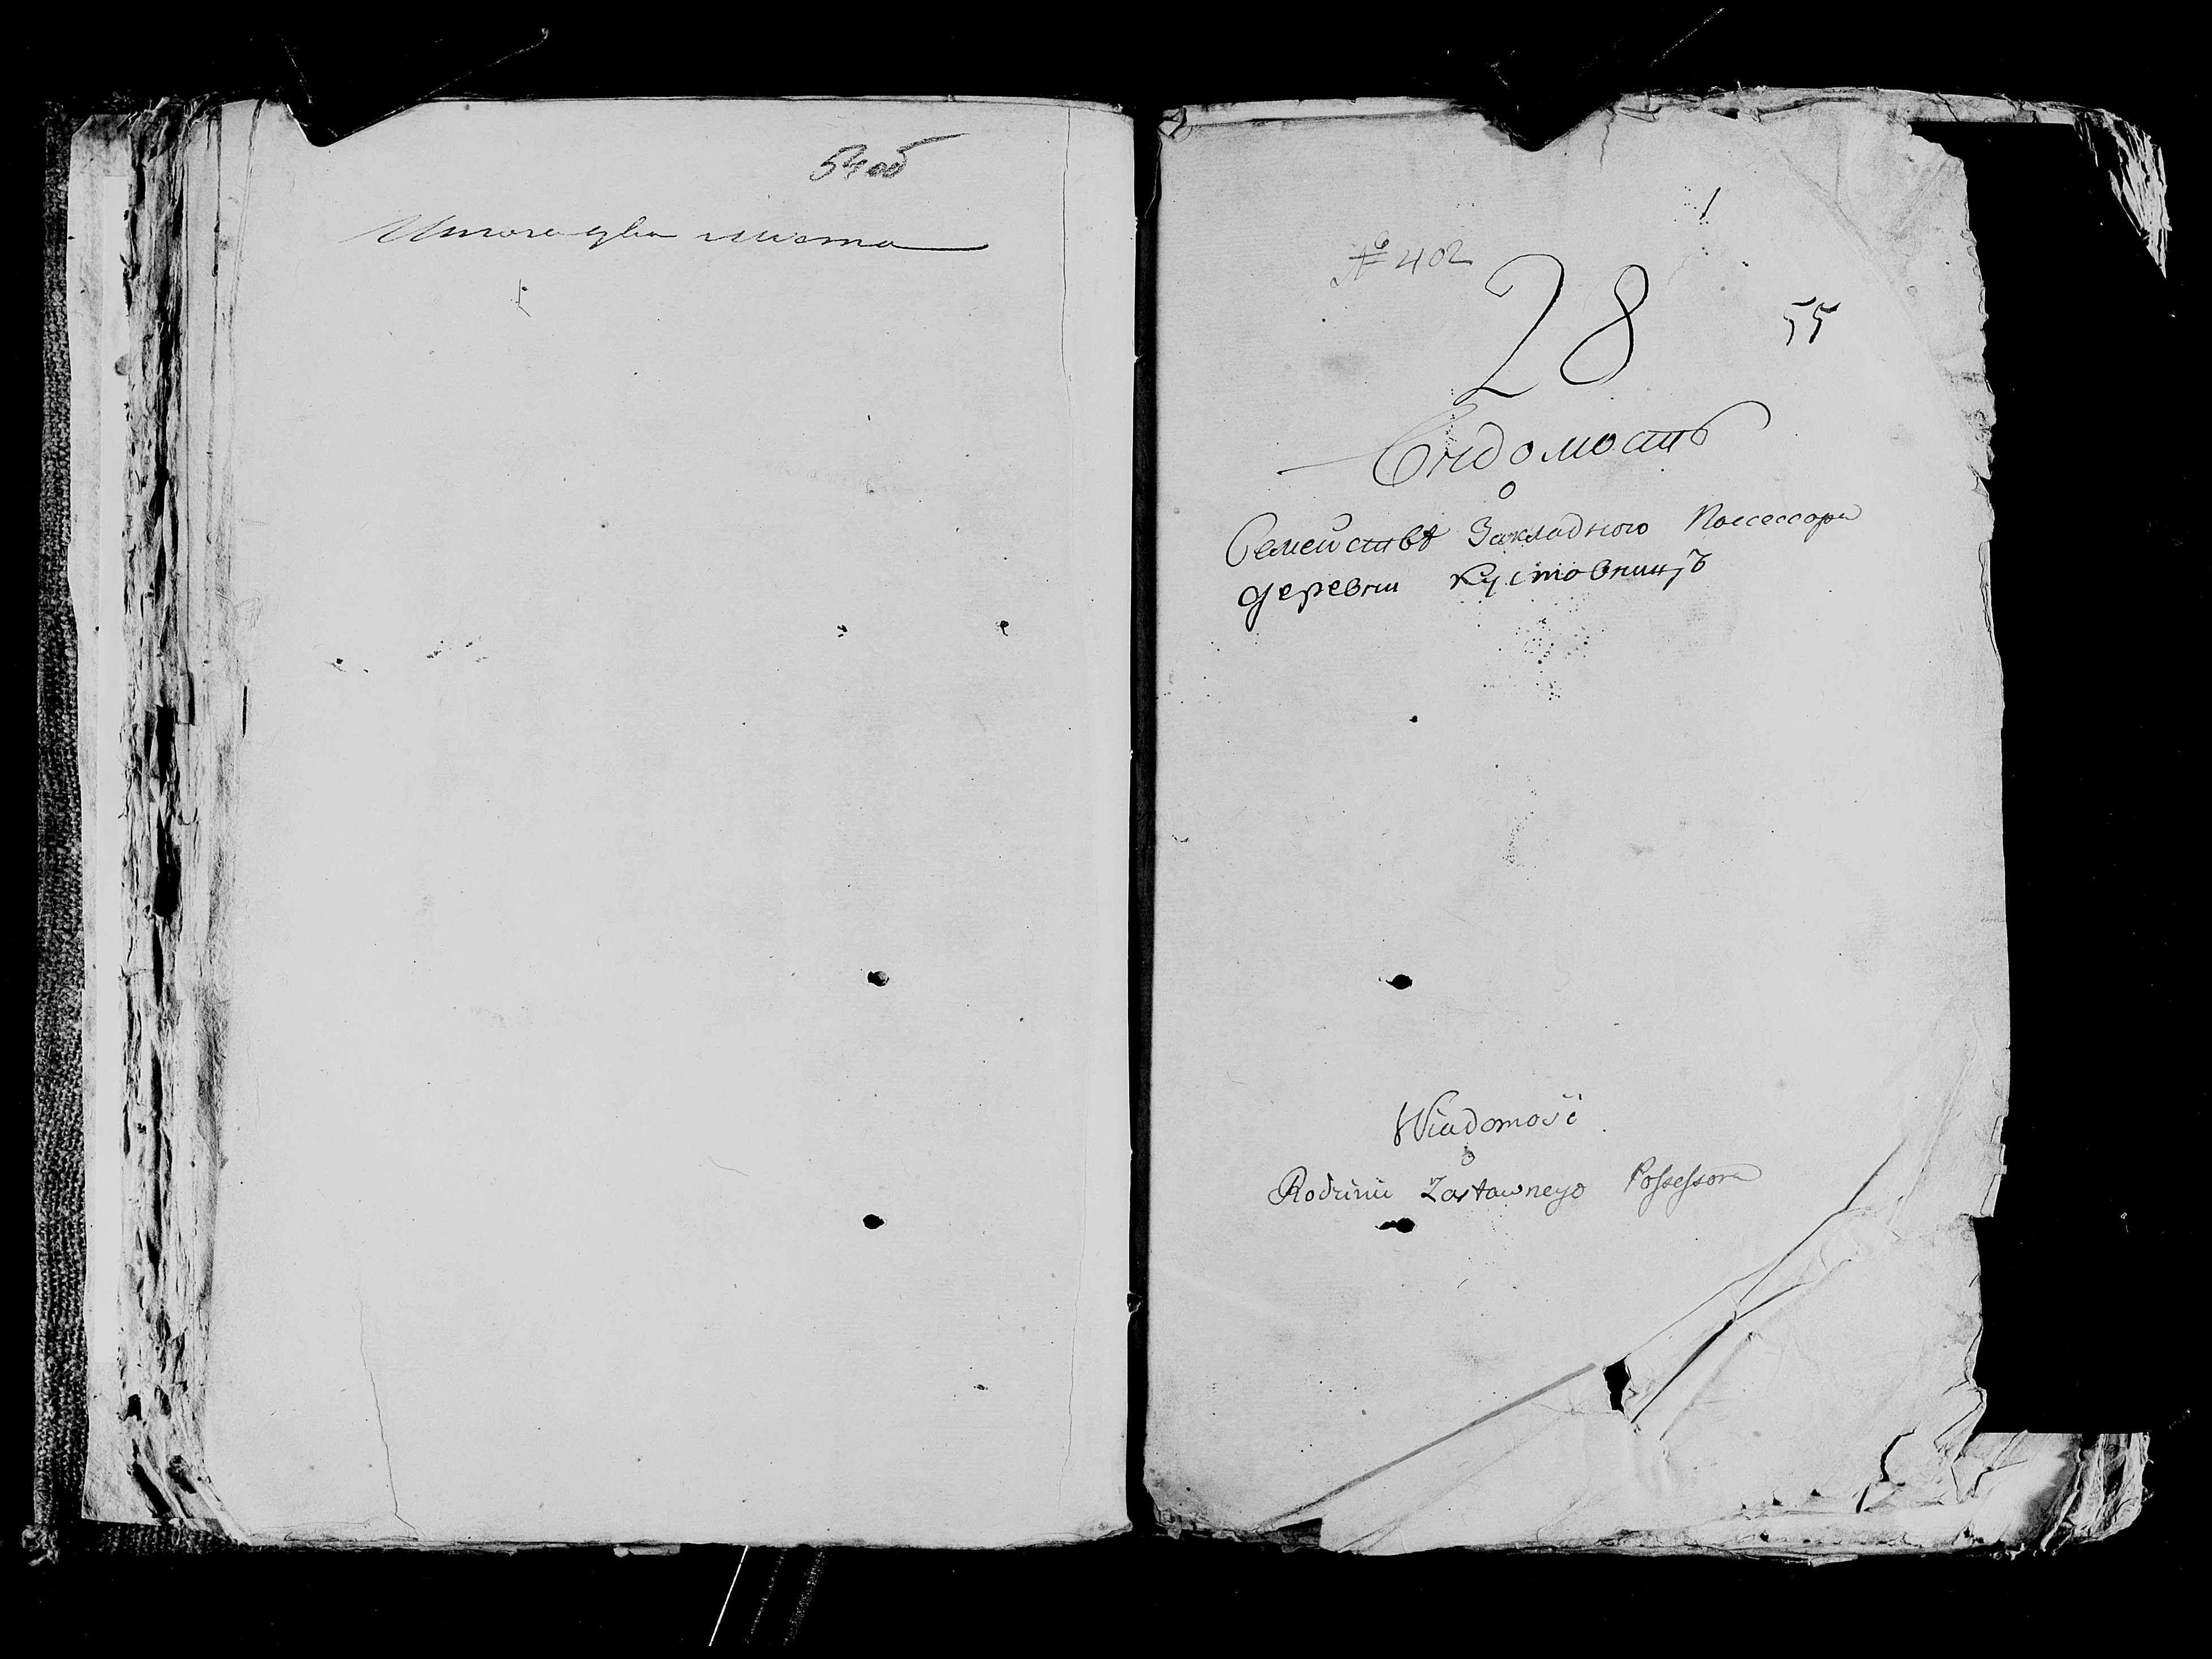 54об
Итого два листа
1
№ 402
28
55
Вѣдомость
о
Семействѣ Закладного Поссессора
деревни Кустовницъ
Wiadomość
o
Rodzinie Zastawnego Possessora